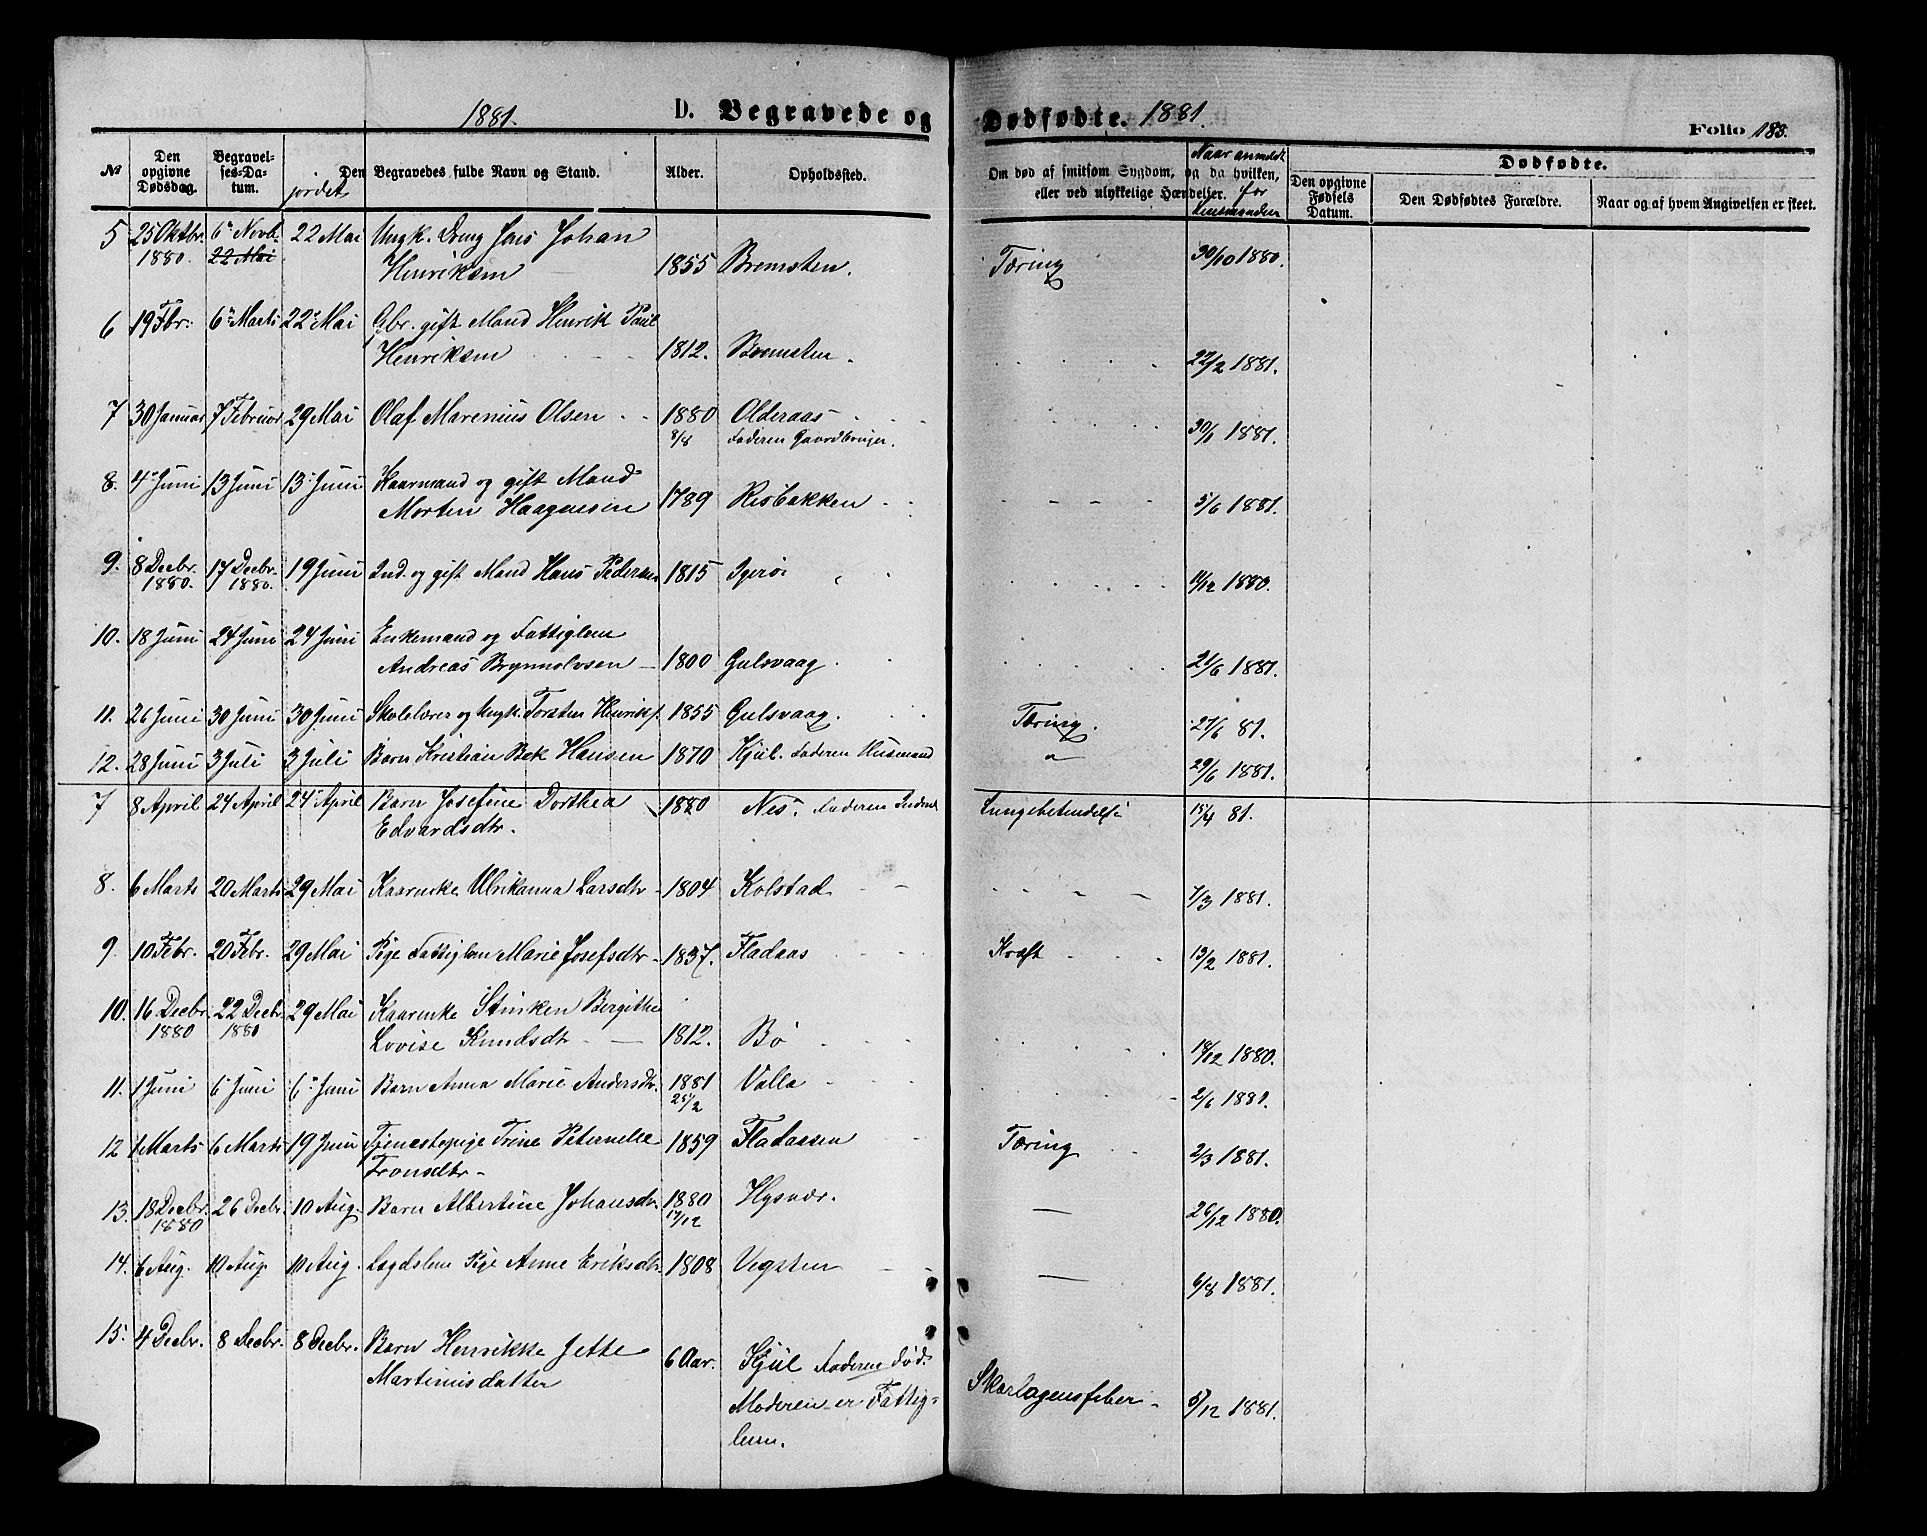 1881. D. Begravede og Dødfødte. 1881. Folio 183.
№ Den opgivne Dødsdag. Begravelses-Datum. jordet Den Begravedes fulde Navn og Stand. Alder. Opholdssted. Om død af smitsom Sygdom, og da hvilken, eller ved ulykkelige Hændelser. Naar anmeldt for Lensmanden Dødfødte. Den opgivne Fødsels Datum. Den Dødfødtes Forældre. Naar og af hvem Angivelsen er skeet.
5 25 Oktbr. 6te Novb. 22 Mai Ungk. Dreng Jens Johan
1880. 22 Mai Henriksen 1855 Bremsten. Tæring 30/10 1880.
6 19 Fbr. 6te Marts 22de Mai Gbr. gift Mand Henrik Paul
Henriksen 1812. Bremsten. 22/2 1881.
7 30 Januar 7de Februar 29 Mai Olaf Marenius Olsen 1880 Olderaas
8/8 Faderen Gaardbruger. 30/1 1881.
8. 4de Juni 13 Juni 13 Juni Kaarmand og gift Mand
Morten Haagensen 1789 Resbakken 5/6 1881.
9. 8 Decbr. 17 Decbr. 19 Juni Ind. og gift Mand Hans Pedersen 1815 Igerøi
1880. 1880. 11/12 1880.
10. 18 Juni 24 Juni 24 Juni Enkemand og Fattiglem
Andreas Brynnolvsen 1800 Gulsvaag 21/6 1881.
11. 26 Juni 30 Juni 30 Juni Skolelærer og Ungk. Torsten Henriks. 1855 Gulsvaag. Tæring. 27/6 81.
12. 28 Juni 3 Juli 3 Juli Barn Kristian Bek Hansen 1870 Kjul. Faderen Husmand " 29/6 1881.
7 8 April 24 April 24de April Barn Josefine Dorthea 1880 Nes. Faderen Lungebetendelse 15/4 81.
Edvardsdtr.
8. 6 Marts 20 Marts 29 Mai Kaarenke Ulrikanna Larsdtr 1804 Kolstad 7/3 1881.
9. 10 Febr. 20 Febr. 29 Mai Pige Fattiglem Marie Josefsdtr 1837. Fladaas Kræft 13/2 1881.
10. 16 Decbr 22 Decbr 29 Mai Kaarenke Stinken Bergithe
1880 1880 Lovise Knudsdtr 1812. Bø 18/12 1880.
11. 1 Juni 6te Juni 6te Juni Barn Anna Marie Andersdtr. 1881 Valla
25/2 2/6 1881.
12 1 Marts 6 Marts 19 Juni Tjenestepige Trine Peternelle 1859 Fladaasen Tæring 2/3 1881.
Tronsdtr
13. 18 Decbr. 26 Decbr. 10 Aug. Barn Albertine Johansdtr. 1880 Hysvær.
1880 17/12 — 26/12 1880.
14. 6 Aug. 10 Aug. 10 Aug. Lægdslem Pige Anne Eriksdtr. 1808 Vegsten — 6/8 1881.
15. 4 Decbr. 8 Decbr. 8 Decbr. Barn Henrikke Jette
Martinusdatter 6 Aar. Kjul Faderen død.
Moderen er Fattig- Skarlagensfeber 5/12 1881.
lem.